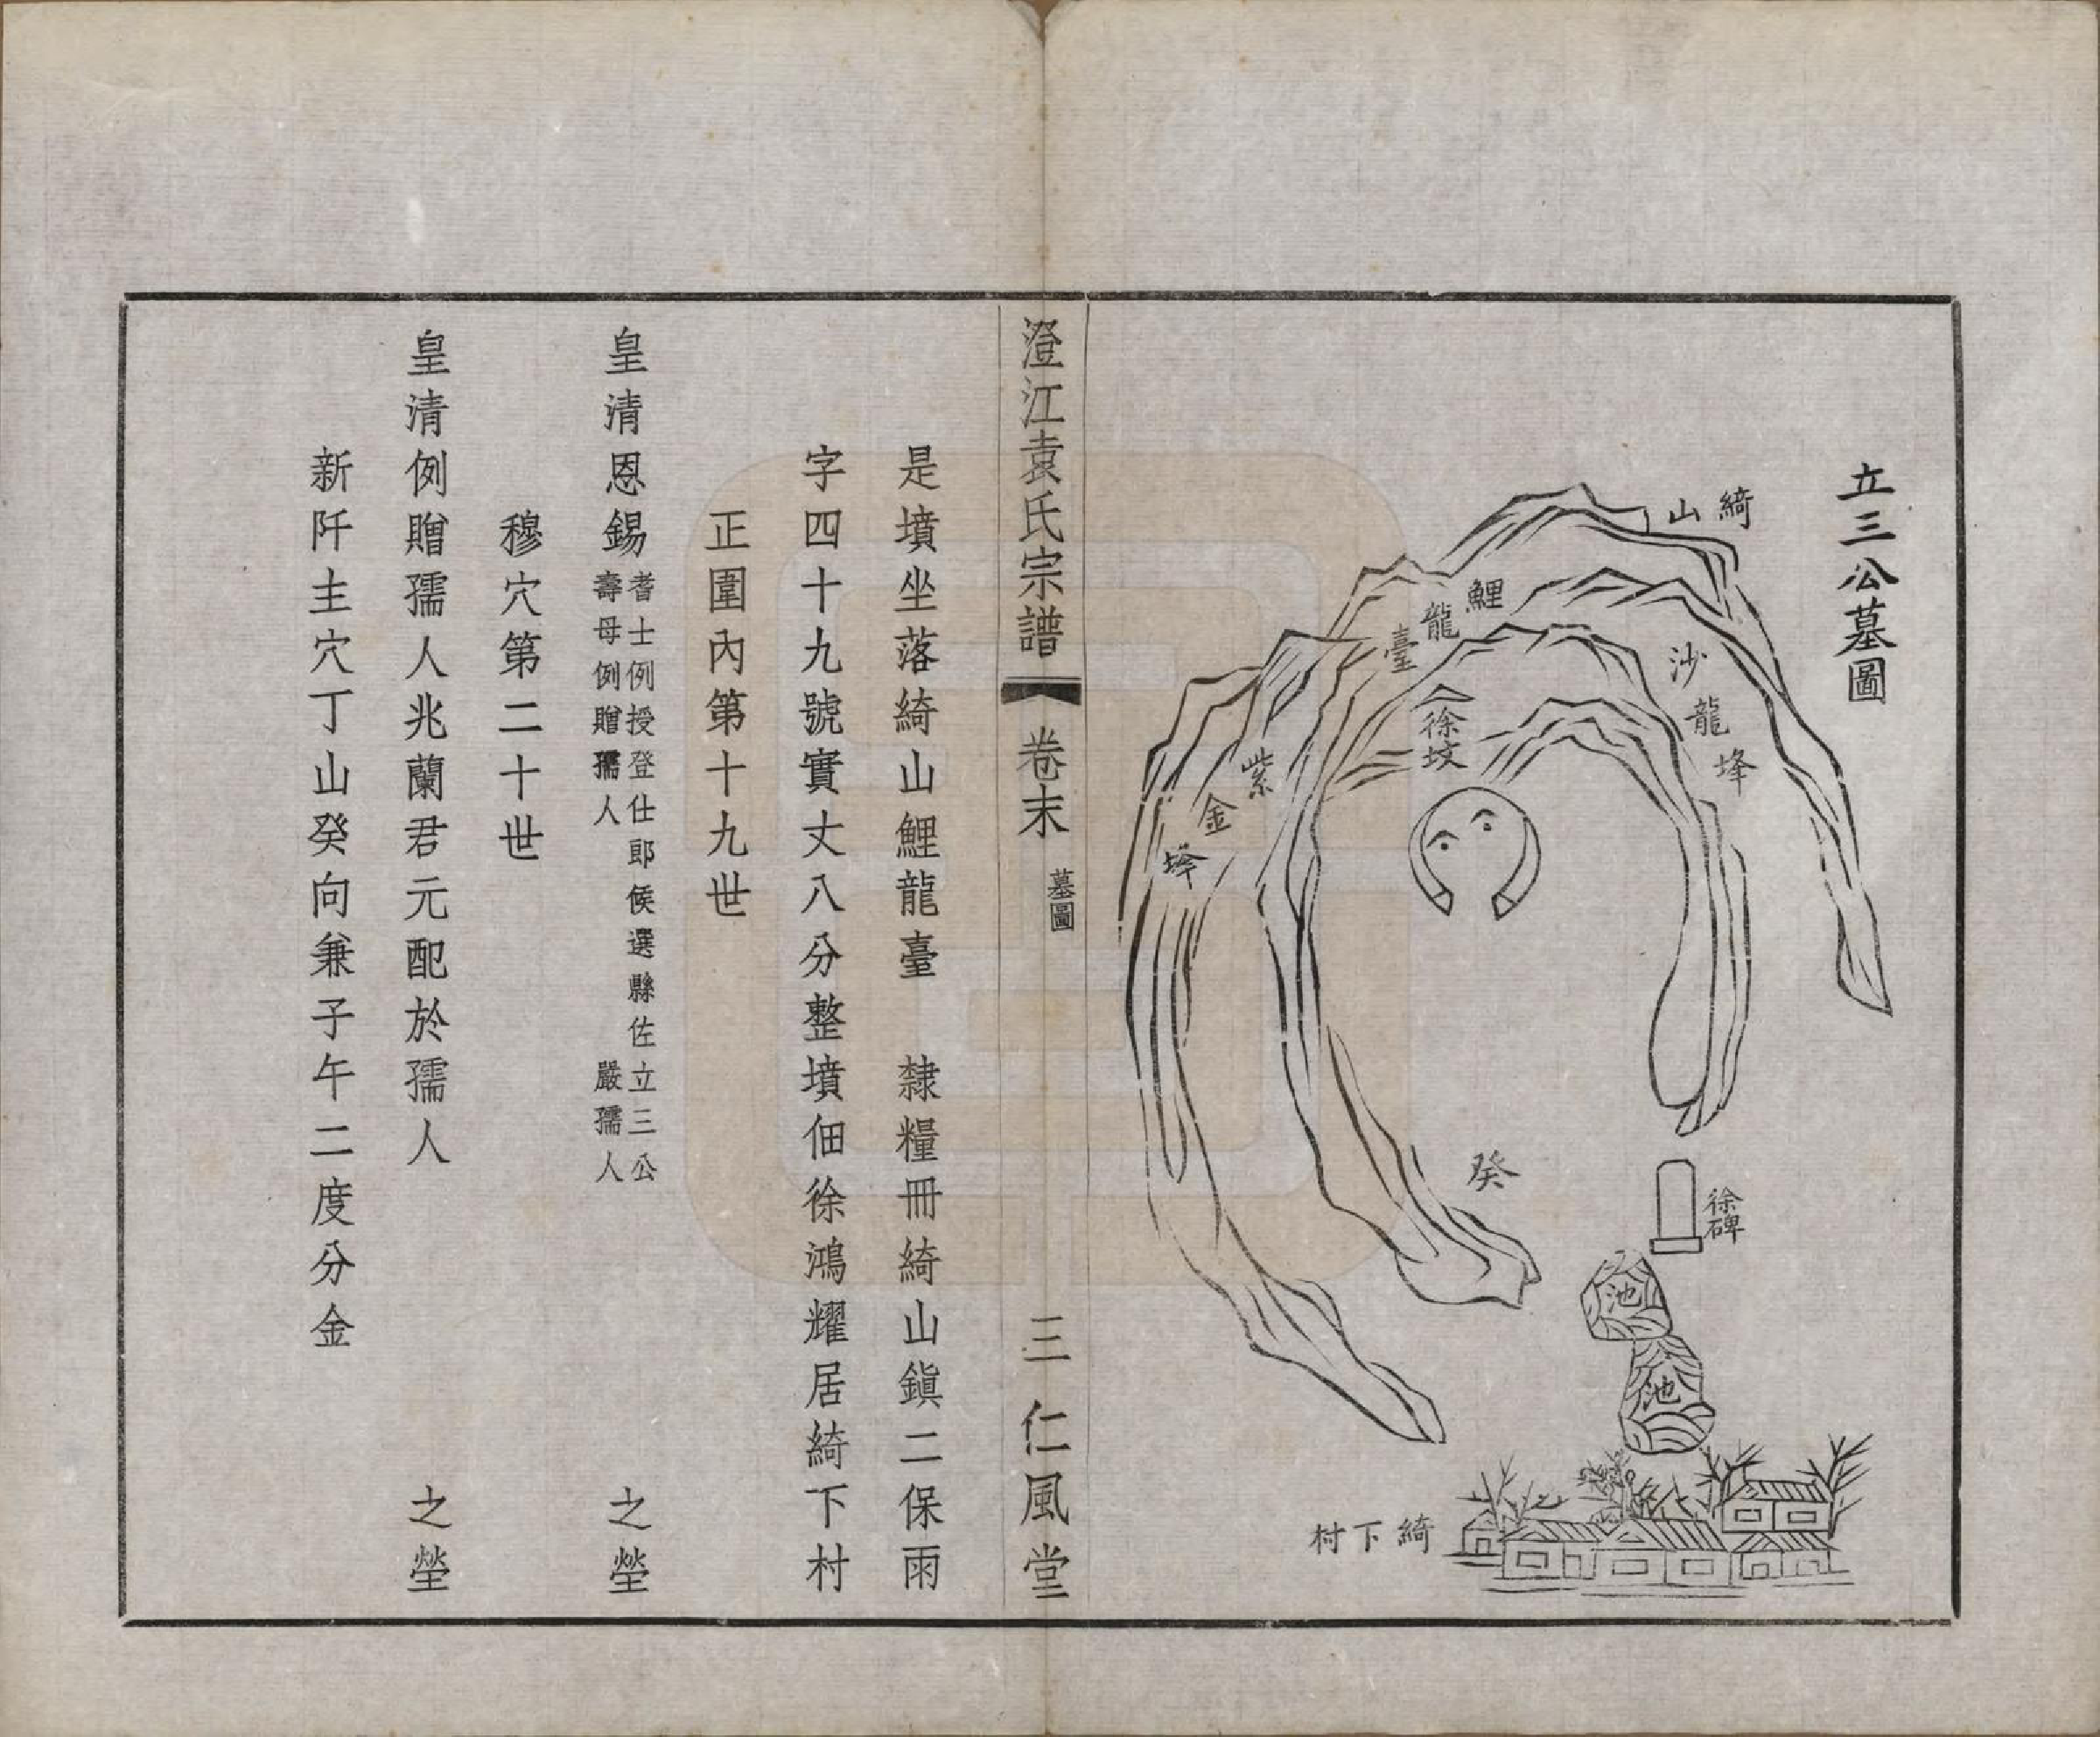 立三公墓圖
綺山
鯉龍臺
沙龍埄
徐坟
紫金
癸
徐碑
池
池
綺下村
澄江袁氏宗譜 卷末 墓圖 三 仁風堂
是墳坐落綺山鯉龍臺 隸糧冊綺山鎮二保雨
字四十九號實丈八分整墳佃徐鴻耀居綺下村
正圍內第十九世
皇清恩錫耆士例授登仕郎候選縣佐立三公
壽母例贈孺人 嚴孺人
之塋
穆穴第二十世
皇清例贈孺人兆蘭君元配於孺人 之塋
新阡主穴丁山癸向兼子午二度分金